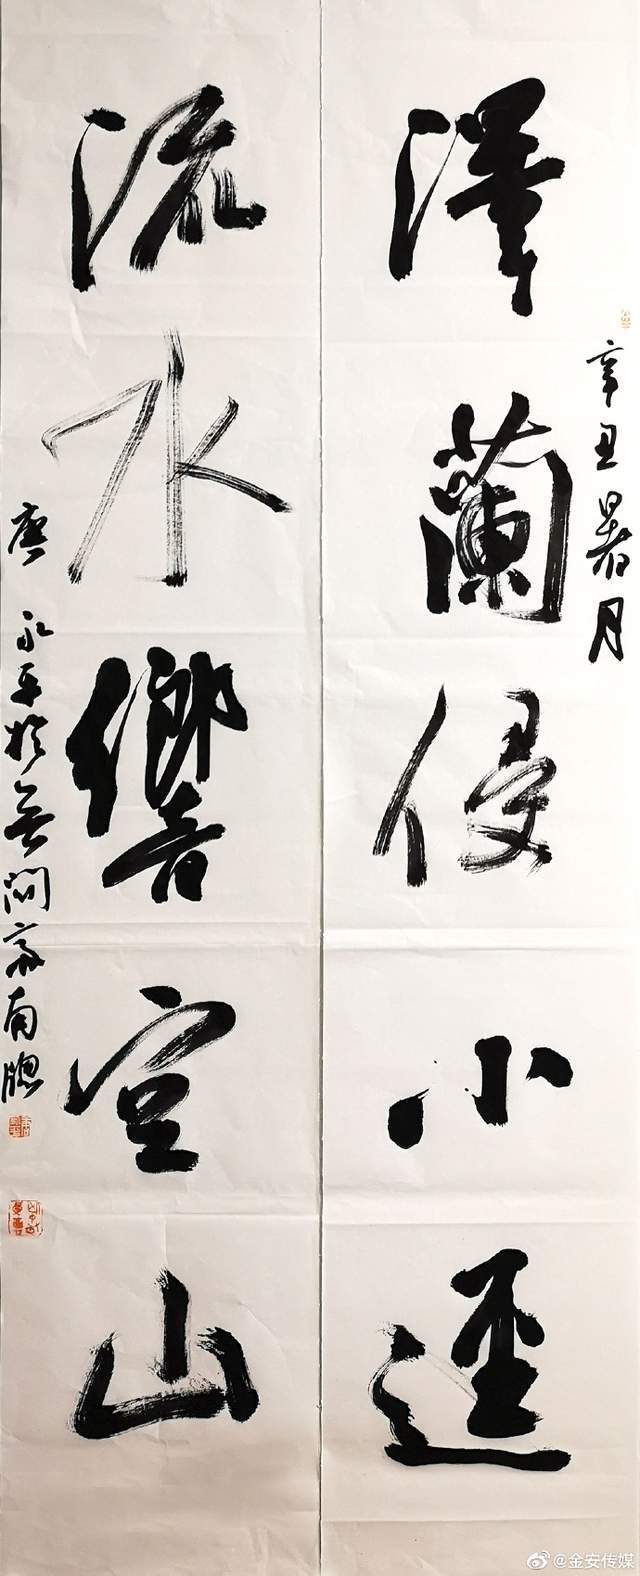 辛丑暑月
澤蘭侵小逕
流水響空山
唐永平於無問齋南牕
@金安传媒